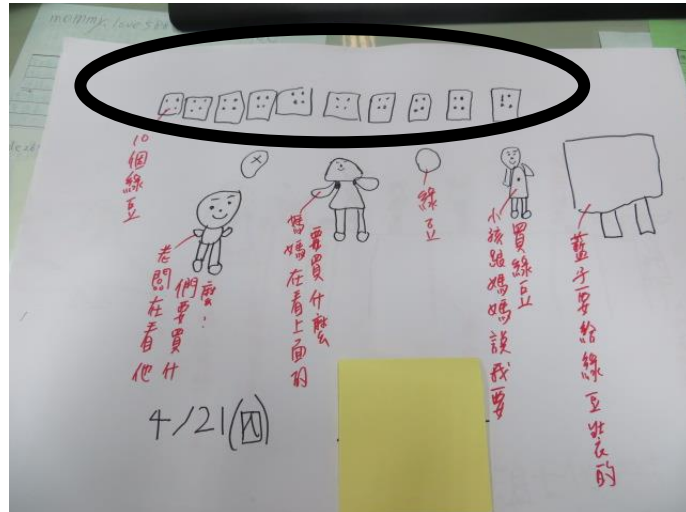 mommy. love
10個綠豆
老闆在看他
們要買什
麼：
媽媽在看上面的
要買什麼
綠豆
小孩跟媽媽說我要
買綠豆
藍子要給綠豆裝的
4/21(四)